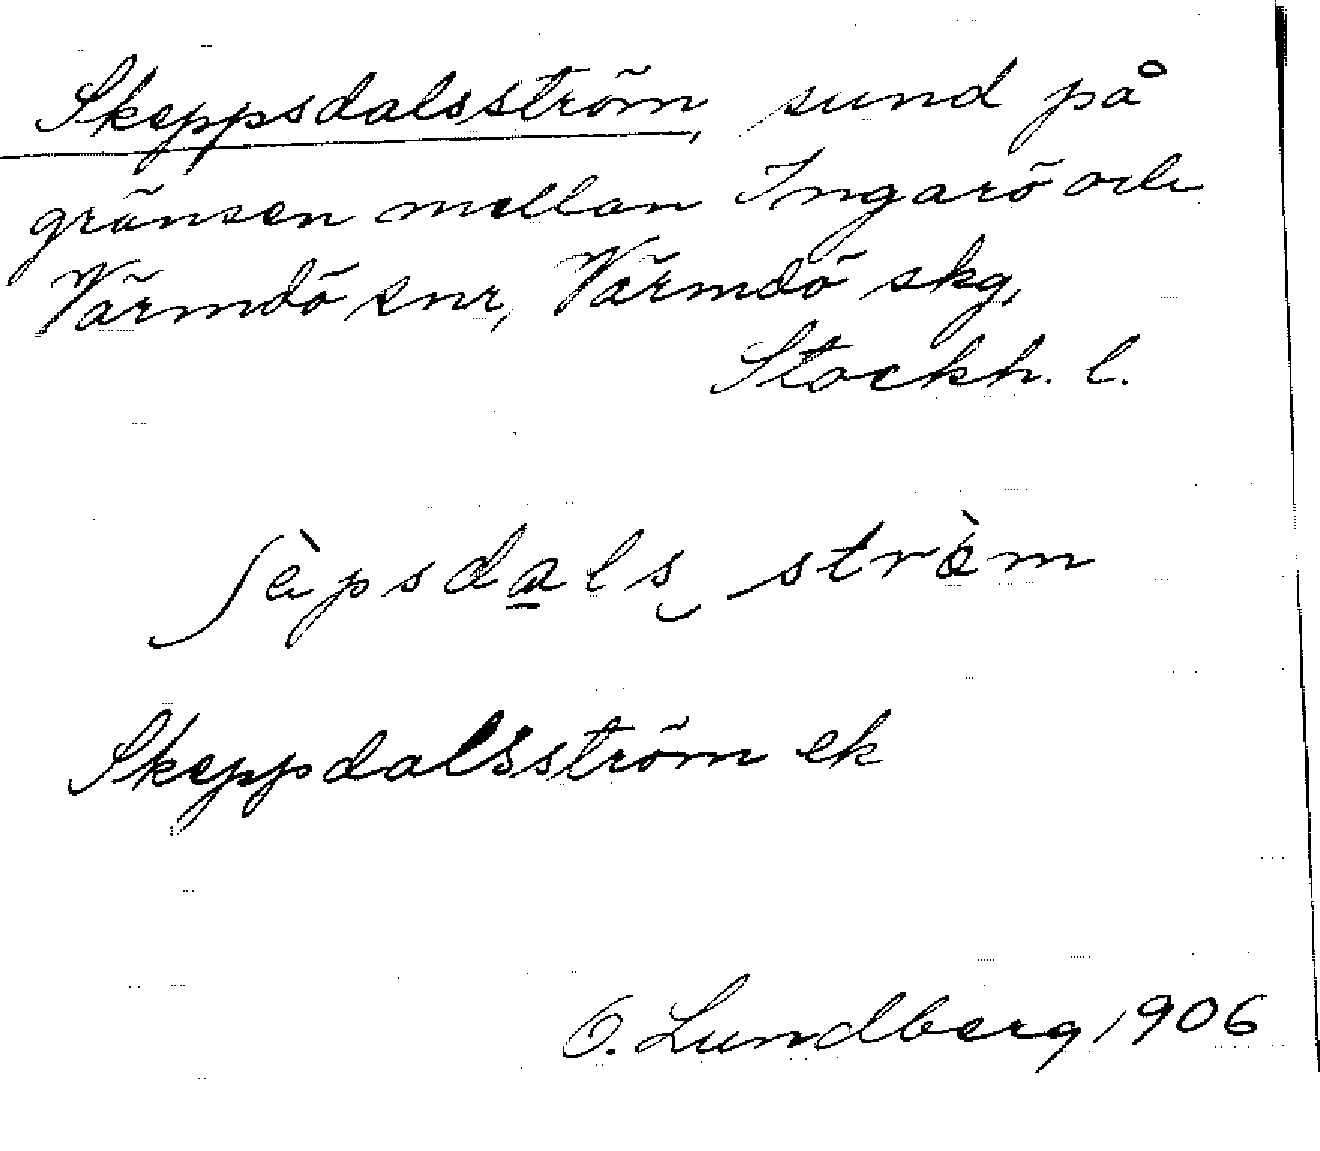 Skeppsdalsström, sund på
gränsen mellan Ingarö och
Värmdö snr, Värmdö skg,
Stockh. l.
ʃèpsdals ström
Skeppdalsström ek
O. Lundberg 1906